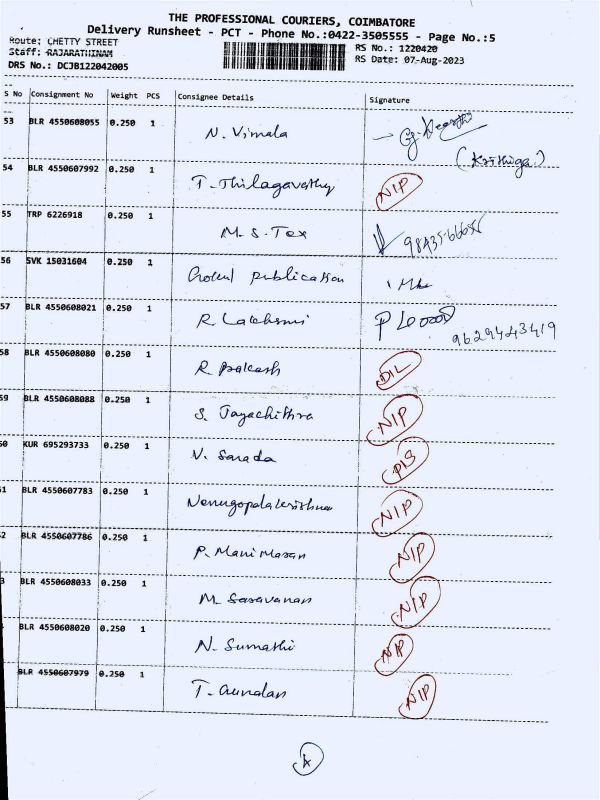 THE PROFESSIONAL COURIERS, COIMBATORE
Delivery Runsheet - PCT - Phone No.:0422-3505555 - Page No.:5
Route: CHETTY STREET RS No.: 1220420
Staff: RAJARATHINAM RS Date: 07-Aug-2023
DRS No.: DCJB122042005
S No Consignment No Weight PCS Consignee Details Signature
53 BLR 4550608055 0.250 1 N. Vimala
(Krithiga)
54 BLR 4550607992 0.250 1 T. Thilagavathy NIP
55 TRP 6226918 0.250 1 M. S. Tex
56 SVK 15031604 0.250 1 publication
57 BLR 4550608021 0.250 1 R. Lakshmi
9629443419
58 BLR 4550608080 0.250 1 R. Prakash DIL
59 BLR 4550608088 0.250 1 S. Jayachithra NIP
60 KUR 695293733 0.250 1 V. Sarada
1 BLR 4550607783 0.250 1 Venugopalakrishnan NIP
2 BLR 4550607786 0.250 1 P. Manimaran NIP
3 BLR 4550608033 0.250 1 M. Saravanan NIP
BLR 4550608020 0.250 1 N. Sumathi NIP
BLR 4550607979 0.250 1 T. NIP